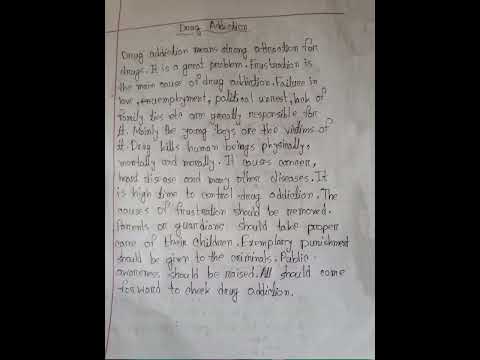 Drug Addiction
Drug addiction means strong attraction for
drugs. It is a great problem. Frustration is
the main cause of drug addiction. Failure in
love, unemployment, political unrest, lack of
family ties etc are greatly responsible for
it. Mainly the young boys are the victims of
it. Drug kills human beings physically,
mentally and morally. It causes cancer,
heart disease and many other diseases. It
is high time to control drug addiction. The
causes of frustration should be removed.
Parents or guardians should take proper
care of their children. Exemplary punishment
should be given to the criminals. Public
awareness should be raised. All should come
forward to check drug addiction.